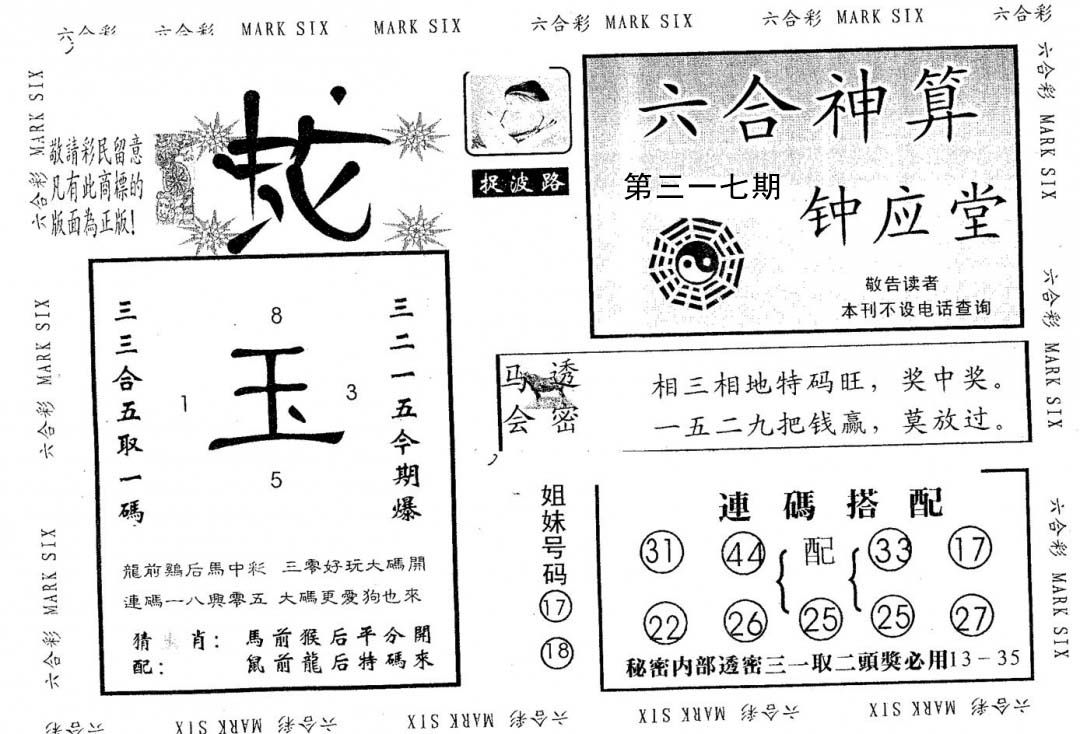 六合彩 六合彩 MARK SIX MARK SIX 六合彩 MARK SIX 六合彩 MARK SIX 六合彩
六合彩 MARK SIX
敬請彩民留意
凡有此商標的
版面為正版!
捉波路
六合神算
第三一七期
钟应堂
敬告读者
本刊不设电话查询
六合彩 MARK SIX
三三合五取一碼
8
1
玉
3
5
三二一五今期爆
龍前鷄后馬中彩 三零好玩大碼開
連碼一八興零五 大碼更愛狗也來
猜 肖: 馬前猴后平分開
配: 鼠前龍后特碼來
马会
透密
相三相地特码旺,奖中奖。
一五二九把钱赢,莫放过。
姐妹号码
17
18
連碼搭配
31 44 配 33 17
22 26 25 25 27
秘密内部透密三一取二頭獎必用13-35
六合彩 MARK SIX
六合彩 MARK SIX
六合彩 MARK SIX
六合彩 MARK SIX
六合彩 MARK SIX 六合彩 MARK SIX 六合彩 MARK SIX 六合彩 MARK SIX 六合彩